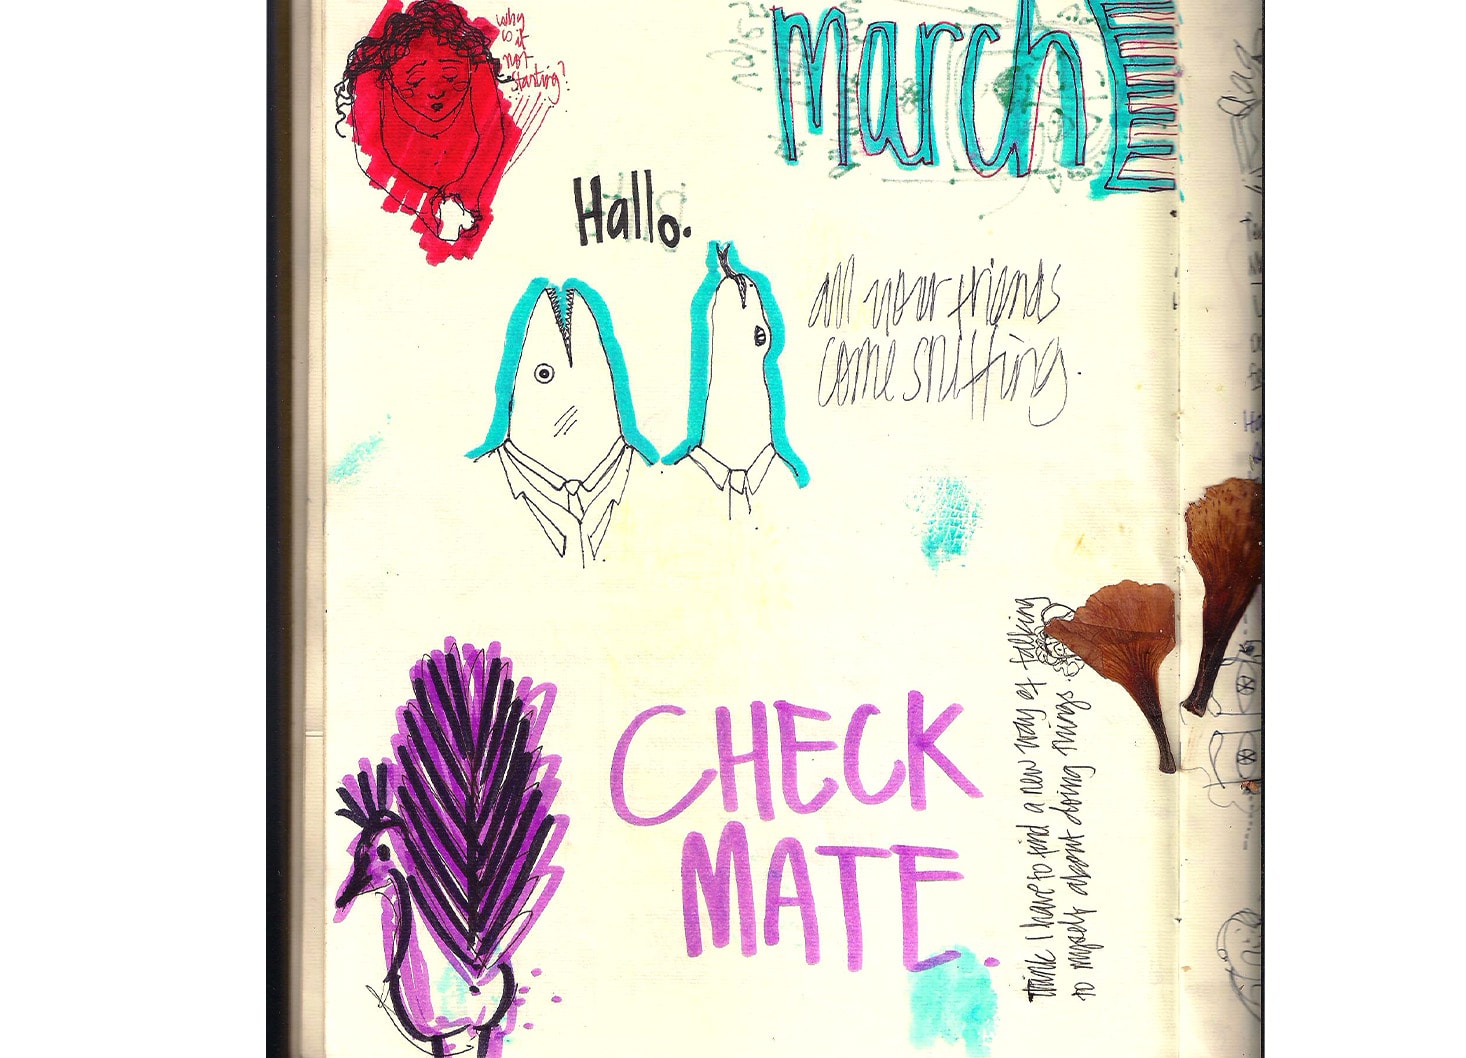 why
is it
not
starting?
march
Hallo.
all your friends
come sniffing.
CHECK
MATE.
think I have to find a new way of talking
to myself about doing things.